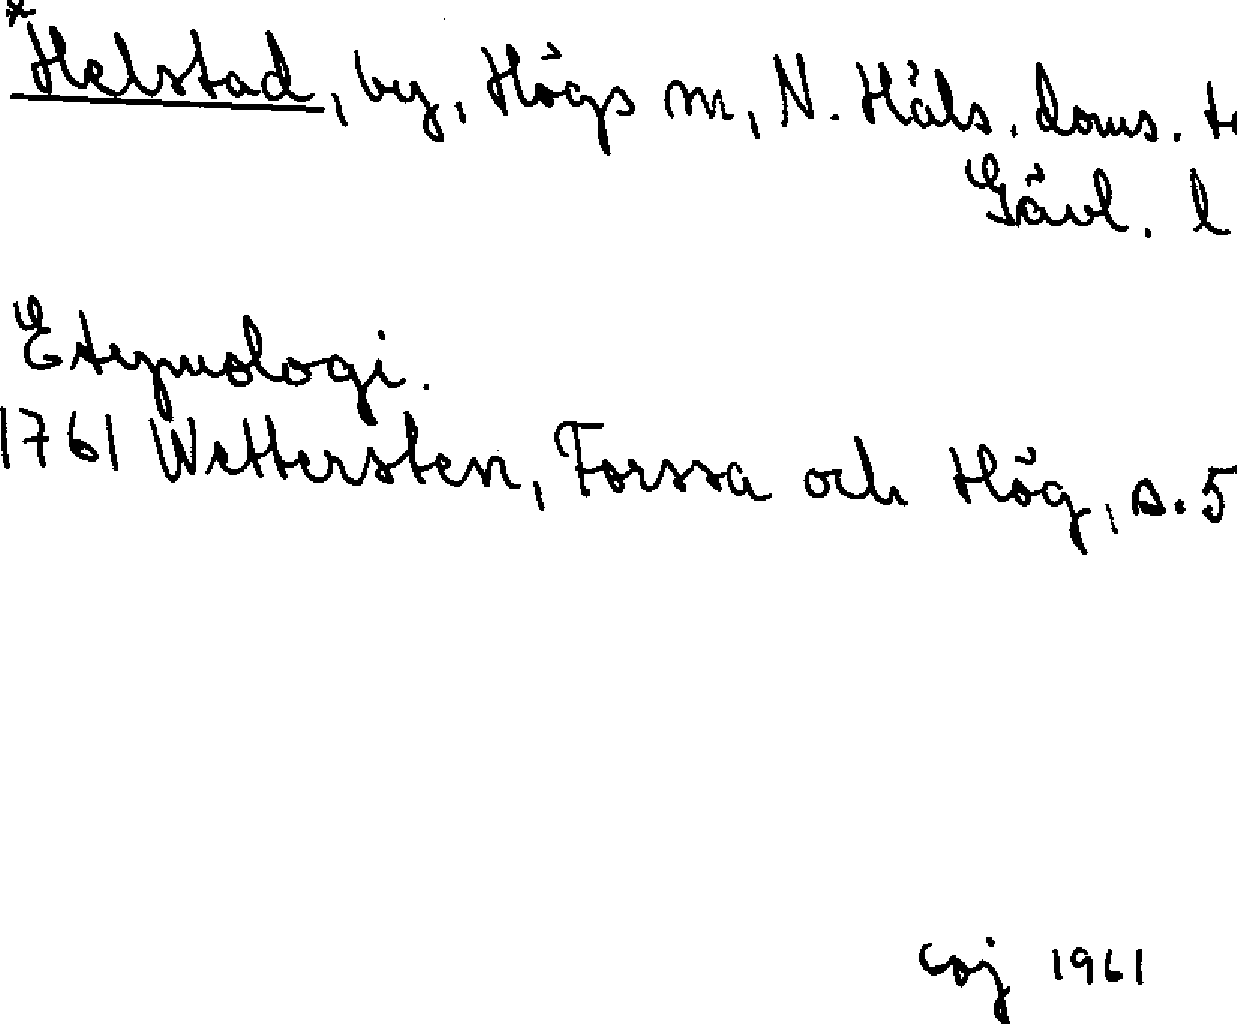 *Helstad, by, Högs sn, N. Häls. doms. t
Gävl. l
Etymologi.
1761 Wettersten, Forssa och Hög, s. 5
coj 1961